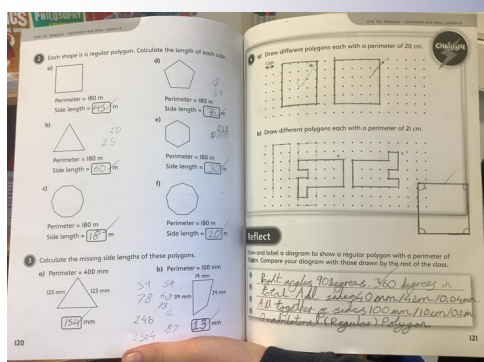 PHILOSOPHY
Unit 10: Measure – perimeter and area, Lesson 4
2 Each shape is a regular polygon. Calculate the length of each side.
a)
Perimeter = 180 m
Side length = 45 m
b)
20
25
Perimeter = 180 m
Side length = 60 m
c)
Perimeter = 180 m
Side length = 18 m
d)
Perimeter = 180 m
Side length = 36 m
e)
Perimeter = 180 m
Side length = 30 m
f)
Perimeter = 180 m
Side length = 20 m
3 Calculate the missing side lengths of these polygons.
a) Perimeter = 400 mm
123 mm
123 mm
154 mm
b) Perimeter = 100 mm
19 mm
39 mm
29 mm
13 mm
39
78
246
87
120
Unit 10: Measure – perimeter and area, Lesson 4
4 a) Draw different polygons each with a perimeter of 20 cm.
CHALLENGE
1 cm
b) Draw different polygons each with a perimeter of 21 cm.
Reflect
Draw and label a diagram to show a regular polygon with a perimeter of
Compare your diagram with those drawn by the rest of the class.
Right angles 90 degrees. 360 degrees in
total. All sides
All together
Quadrilateral (Regular) Polygon
121